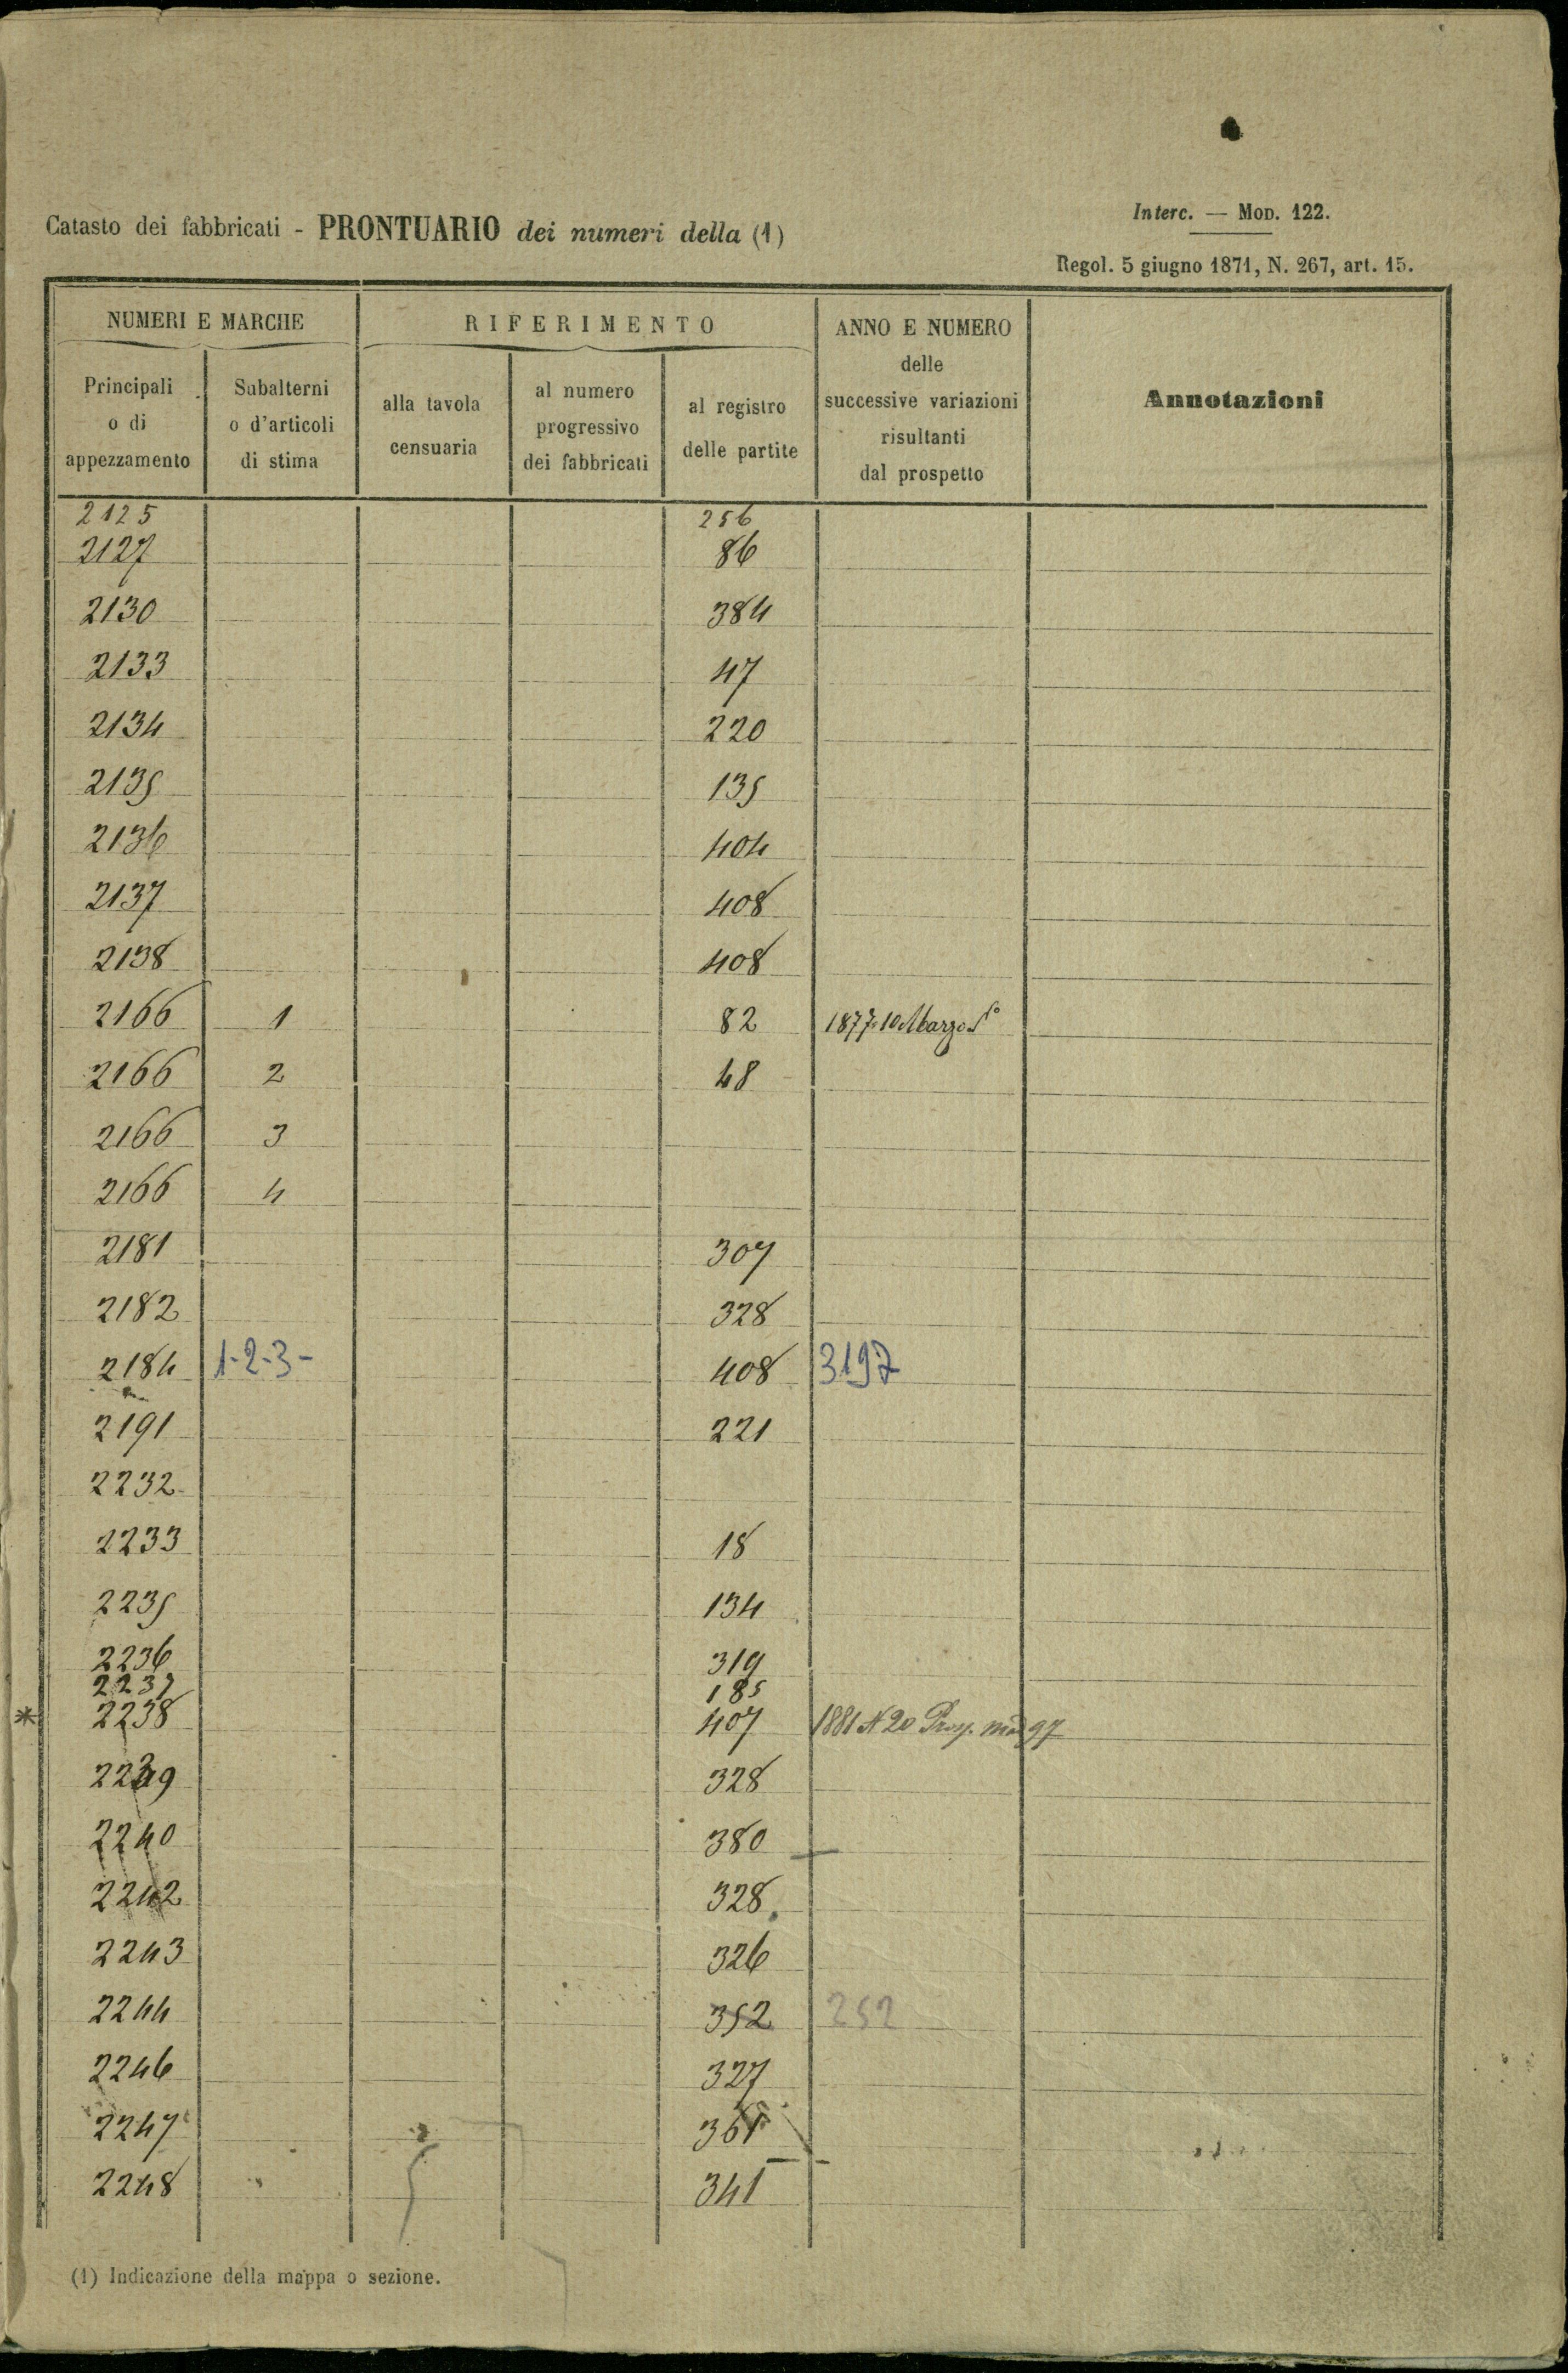 Interc. — Mod. 122.
Catasto dei fabbricati - PRONTUARIO dei numeri della (1)
Regol. 5 giugno 1871, N. 267, art. 15.
NUMERI E MARCHE
RIFERIMENTO
ANNO E NUMERO
delle
successive variazioni
risultanti
dal prospetto
Annotazioni
Principali
o di
appezzamento
Subalterni
o d'articoli
di stima
alla tavola
censuaria
al numero
progressivo
dei fabbricati
al registro
delle partite
2125 256
2127 86
2130 384
2133 47
2134 220
2135 135
2136 404
2137 408
2138 408
2166 1 82 1877. 10 Marzo
2166 2 48
2166 3
2166 4
2181 307
2182 328
2184 1-2-3- 408 3197
2191 221
2232
2233 18
2235 134
2236 319
2237 185
* 2238 407 1881 N 20 Prosp. 97
2239 328
2240 380
2242 328
2243 326
2244 352 252
2246 327
2247 361
2248 341
(1) Indicazione della mappa o sezione.